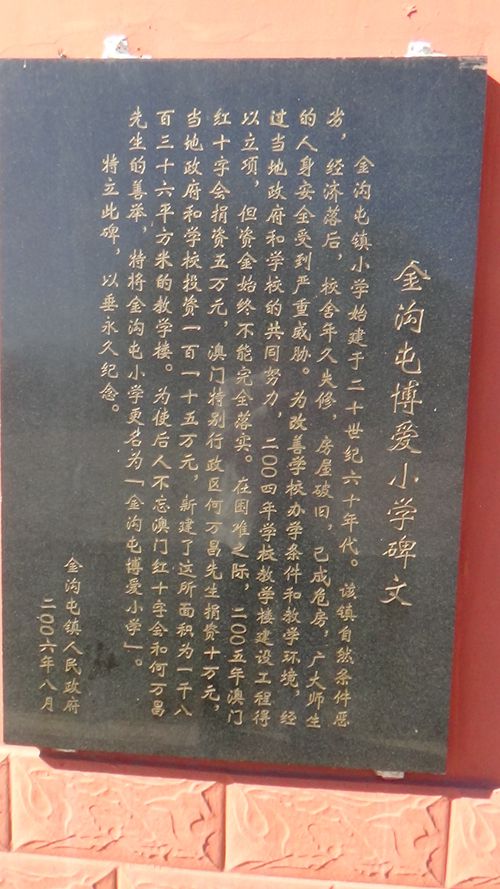 金沟屯博爱小学碑文
金沟屯镇小学始建于二十世纪六十年代。该镇自然条件恶
劣，经济落后，校舍年久失修，房屋破旧，已成危房，广大师生
的人身安全受到严重威胁。为改善学校办学条件和教学环境，经
过当地政府和学校的共同努力，二〇〇四年学校教学楼建设工程得
以立项，但资金始终不能完全落实。在困难之际，二〇〇五年澳门
红十字会捐资五万元，澳门特别行政区何万昌先生捐资十万元，
当地政府和学校投资一百一十五万元，新建了这所面积为一千八
百三十六平方米的教学楼。为使后人不忘澳门红十字会和何万昌
先生的善举，特将金沟屯小学更名为「金沟屯博爱小学」。
特立此碑，以垂永久纪念。
金沟屯镇人民政府
二〇〇六年八月